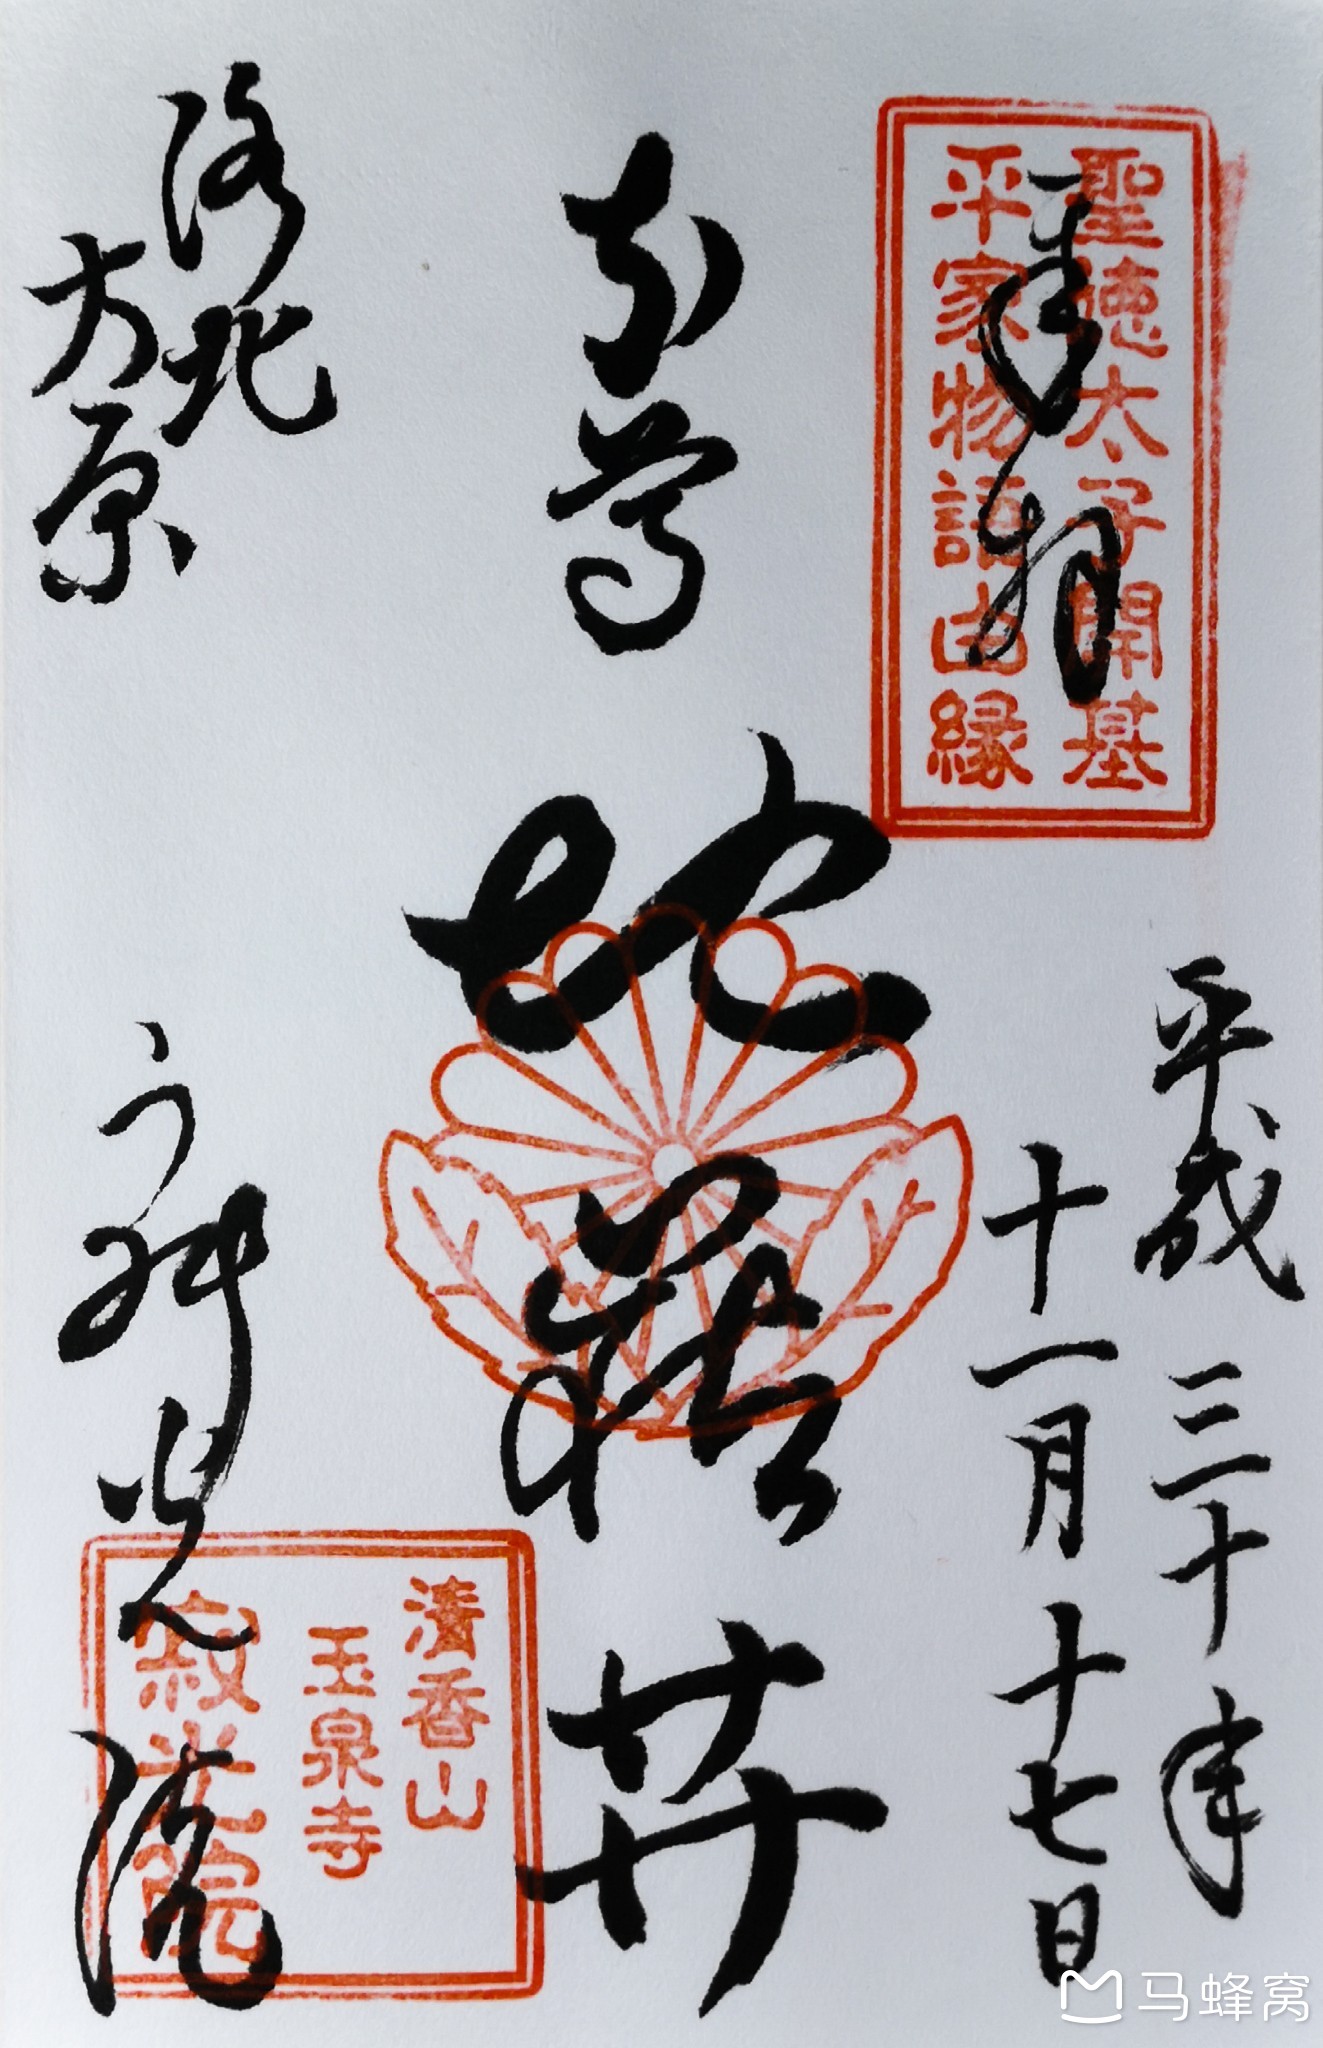 聖徳太子開基
平家物語由縁
奉拝
平成三十年
十一月十七日
本尊
地蔵𦬇
洛北
大原
寂光院
清香山
玉泉寺
寂光院
马蜂窝